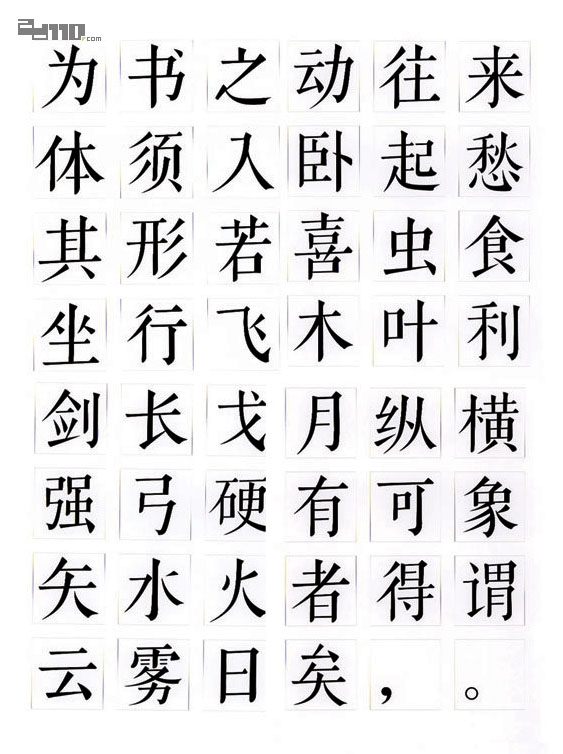 2d110.com
为书之动往来
体须入卧起愁
其形若喜虫食
坐行飞木叶利
剑长戈月纵横
强弓硬有可象
矢水火者得谓
云雾日矣，。